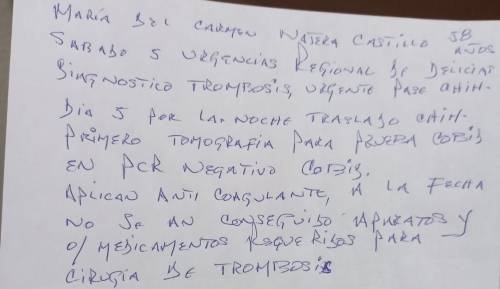 MARÍA DEL CARMEN NAJERA CASTILLO 58 AÑOS
SABADO 5 URGENCIAS REGIONAL DE DELICIAS
DIAGNOSTICO TROMBOSIS, URGENTE PASE CHIH-
DIA 5 POR LA NOCHE TRASLADO CHIH-
PRIMERO TOMOGRAFIA PARA PRUEBA COBIS
EN PCR NEGATIVO COBIS.
APLICAN ANTI COAGULANTE, A LA FECHA
NO SE AN CONSEGUIDO APARATOS Y
O/ MEDICAMENTOS REQUERIDOS PARA
CIRUGIA DE TROMBOSIS